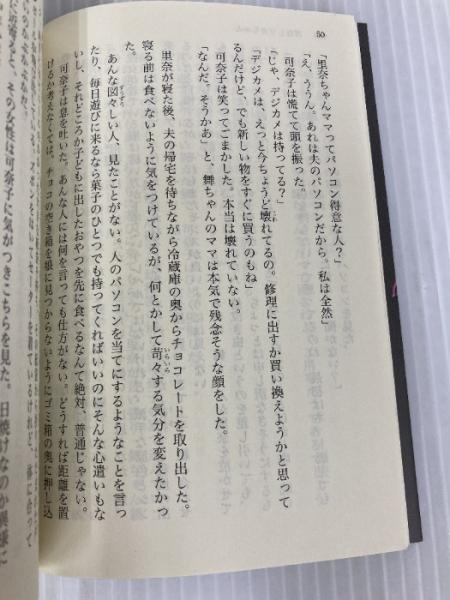 50
「里奈ちゃんママってパソコン得意な人？」
「え、ううん。あれは夫のパソコンだから。私は全然」
可奈子は慌てて頭を振った。
「じゃ、デジカメは持ってる？」
「デジカメは、えっと今ちょうど壊れてるの。修理に出すか買い換えようかと思って
るんだけど、でも新しい物をすぐに買うのもね」
可奈子は笑ってごまかした。本当は壊れていない。
「なんだ、そうかあ」と、舞ちゃんのママは本気で残念そうな顔をした。
里奈が寝た後、夫の帰宅を待ちながら冷蔵庫の奥からチョコレートを取り出した。
寝る前は食べないように気をつけているが、何とかして苛々する気分を変えたかっ
た。
あんな図々しい人、見たことがない。人のパソコンを当てにするようなことを言っ
たり、毎日遊びに来るなら菓子のひとつでも持ってくればいいのにそんな心遣いもな
いし、それどころか子どもに出したおやつを先に食べるなんて絶対、普通じゃない。
可奈子は息を吐いた。あんな人には何を言っても仕方がない。どうすれば距離を置
けるか考えなくては。チョコの空き箱を娘に見つからないようにゴミ箱の奥に押し込